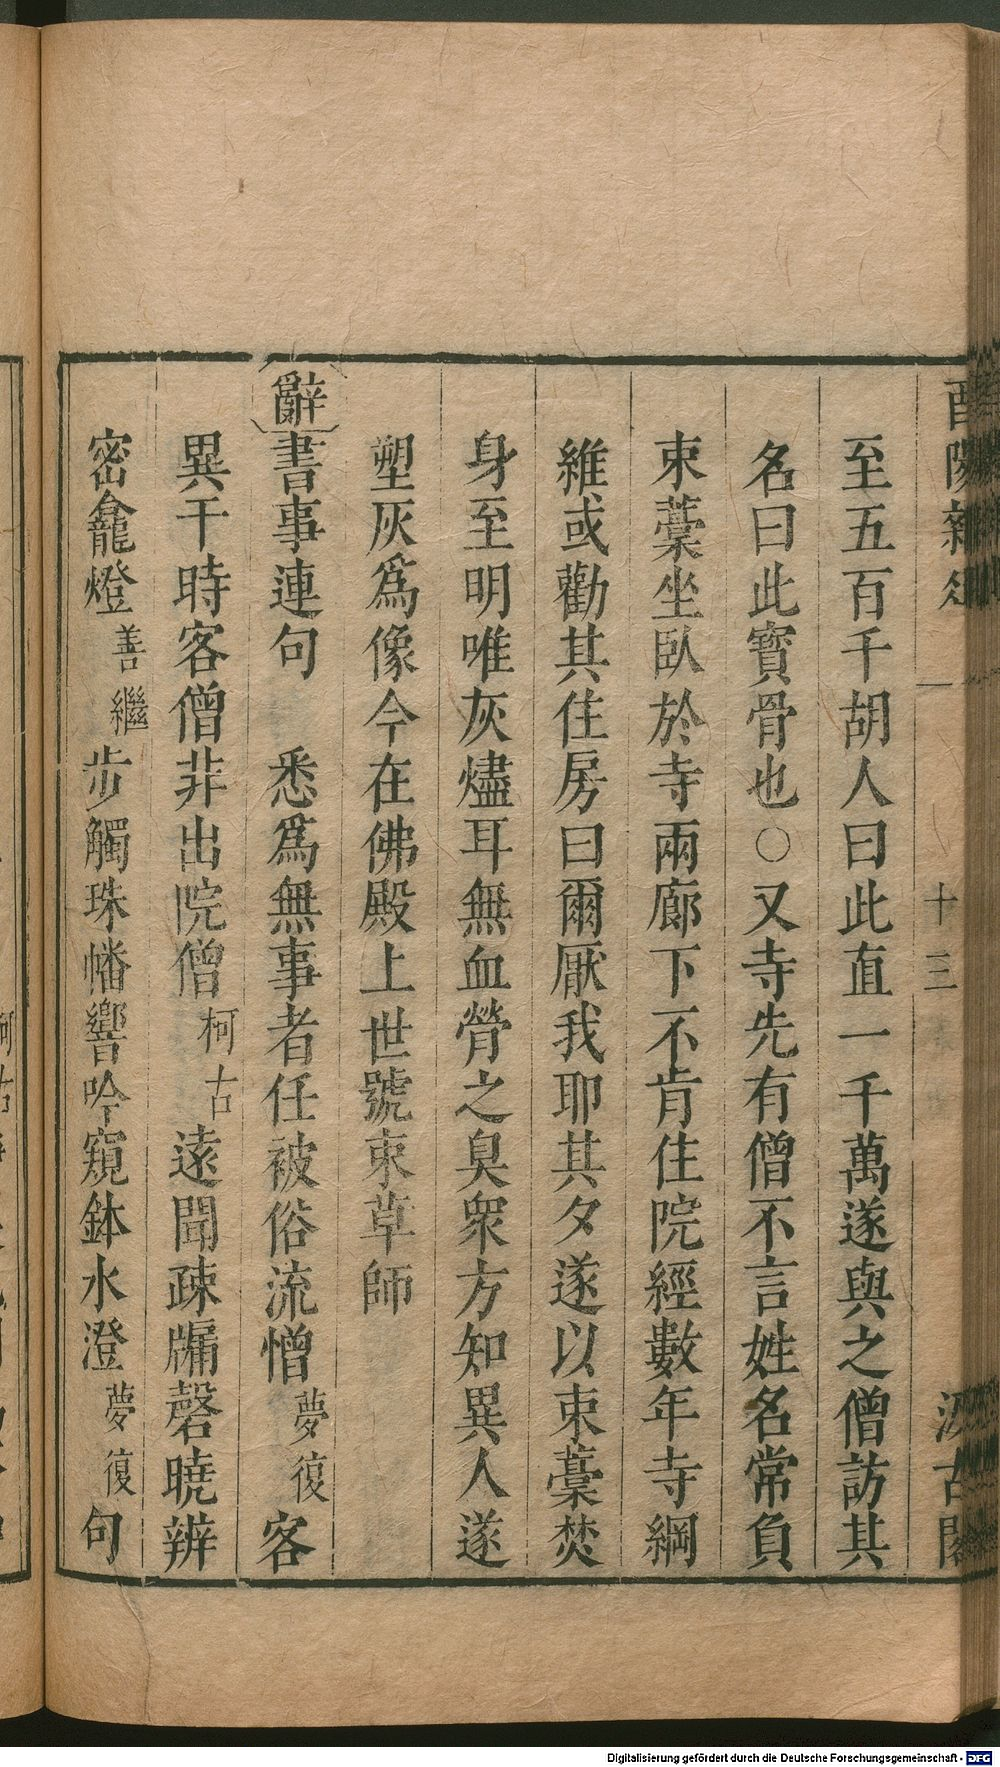 酉陽雜俎 一 十三 汲古閣
至五百千胡人曰此直一千萬遂與之僧訪其
名曰此寳骨也○又寺先有僧不言姓名常負
束藁坐臥於寺兩廊下不肯住院經數年寺綱
維或勸其住房曰爾厭我耶其夕遂以束藁焚
身至明唯灰燼耳無血膋之臭衆方知異人遂
塑灰爲像今在佛殿上世號束草師
辭書事連句 悉爲無事者任被俗流憎夢復客
異干時客僧非出院僧柯古遠聞疎牖磬曉辨
密龕燈善繼步觸珠幡響吟窺鉢水澄夢復句
Digitalisierung gefördert durch die Deutsche Forschungsgemeinschaft - DFG